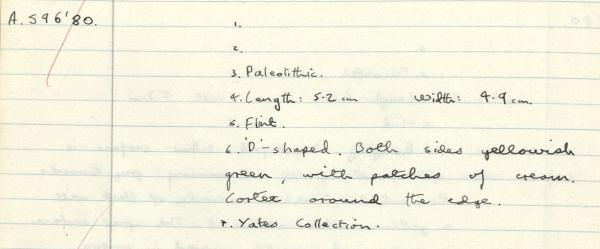 A.596'80.
1.
2.
3. Paleolithic.
4. Length: 5.2 cm Width: 4.9 cm.
5. Flint.
6. 'D'-shaped. Both sides yellowish
green, with patches of cream.
Cortex around the edge.
7. Yates Collection.